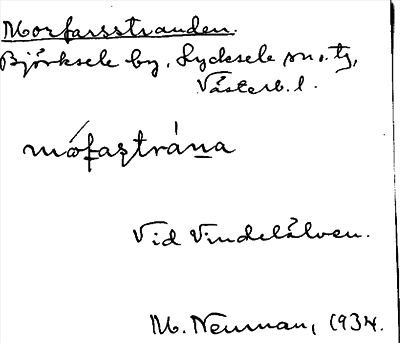 Morfarsstranden.
Björksele by, Lycksele sn o. tg,
Västerb. l.
mófaștrána
Vid Vindelälven.
M. Neuman, 1934.